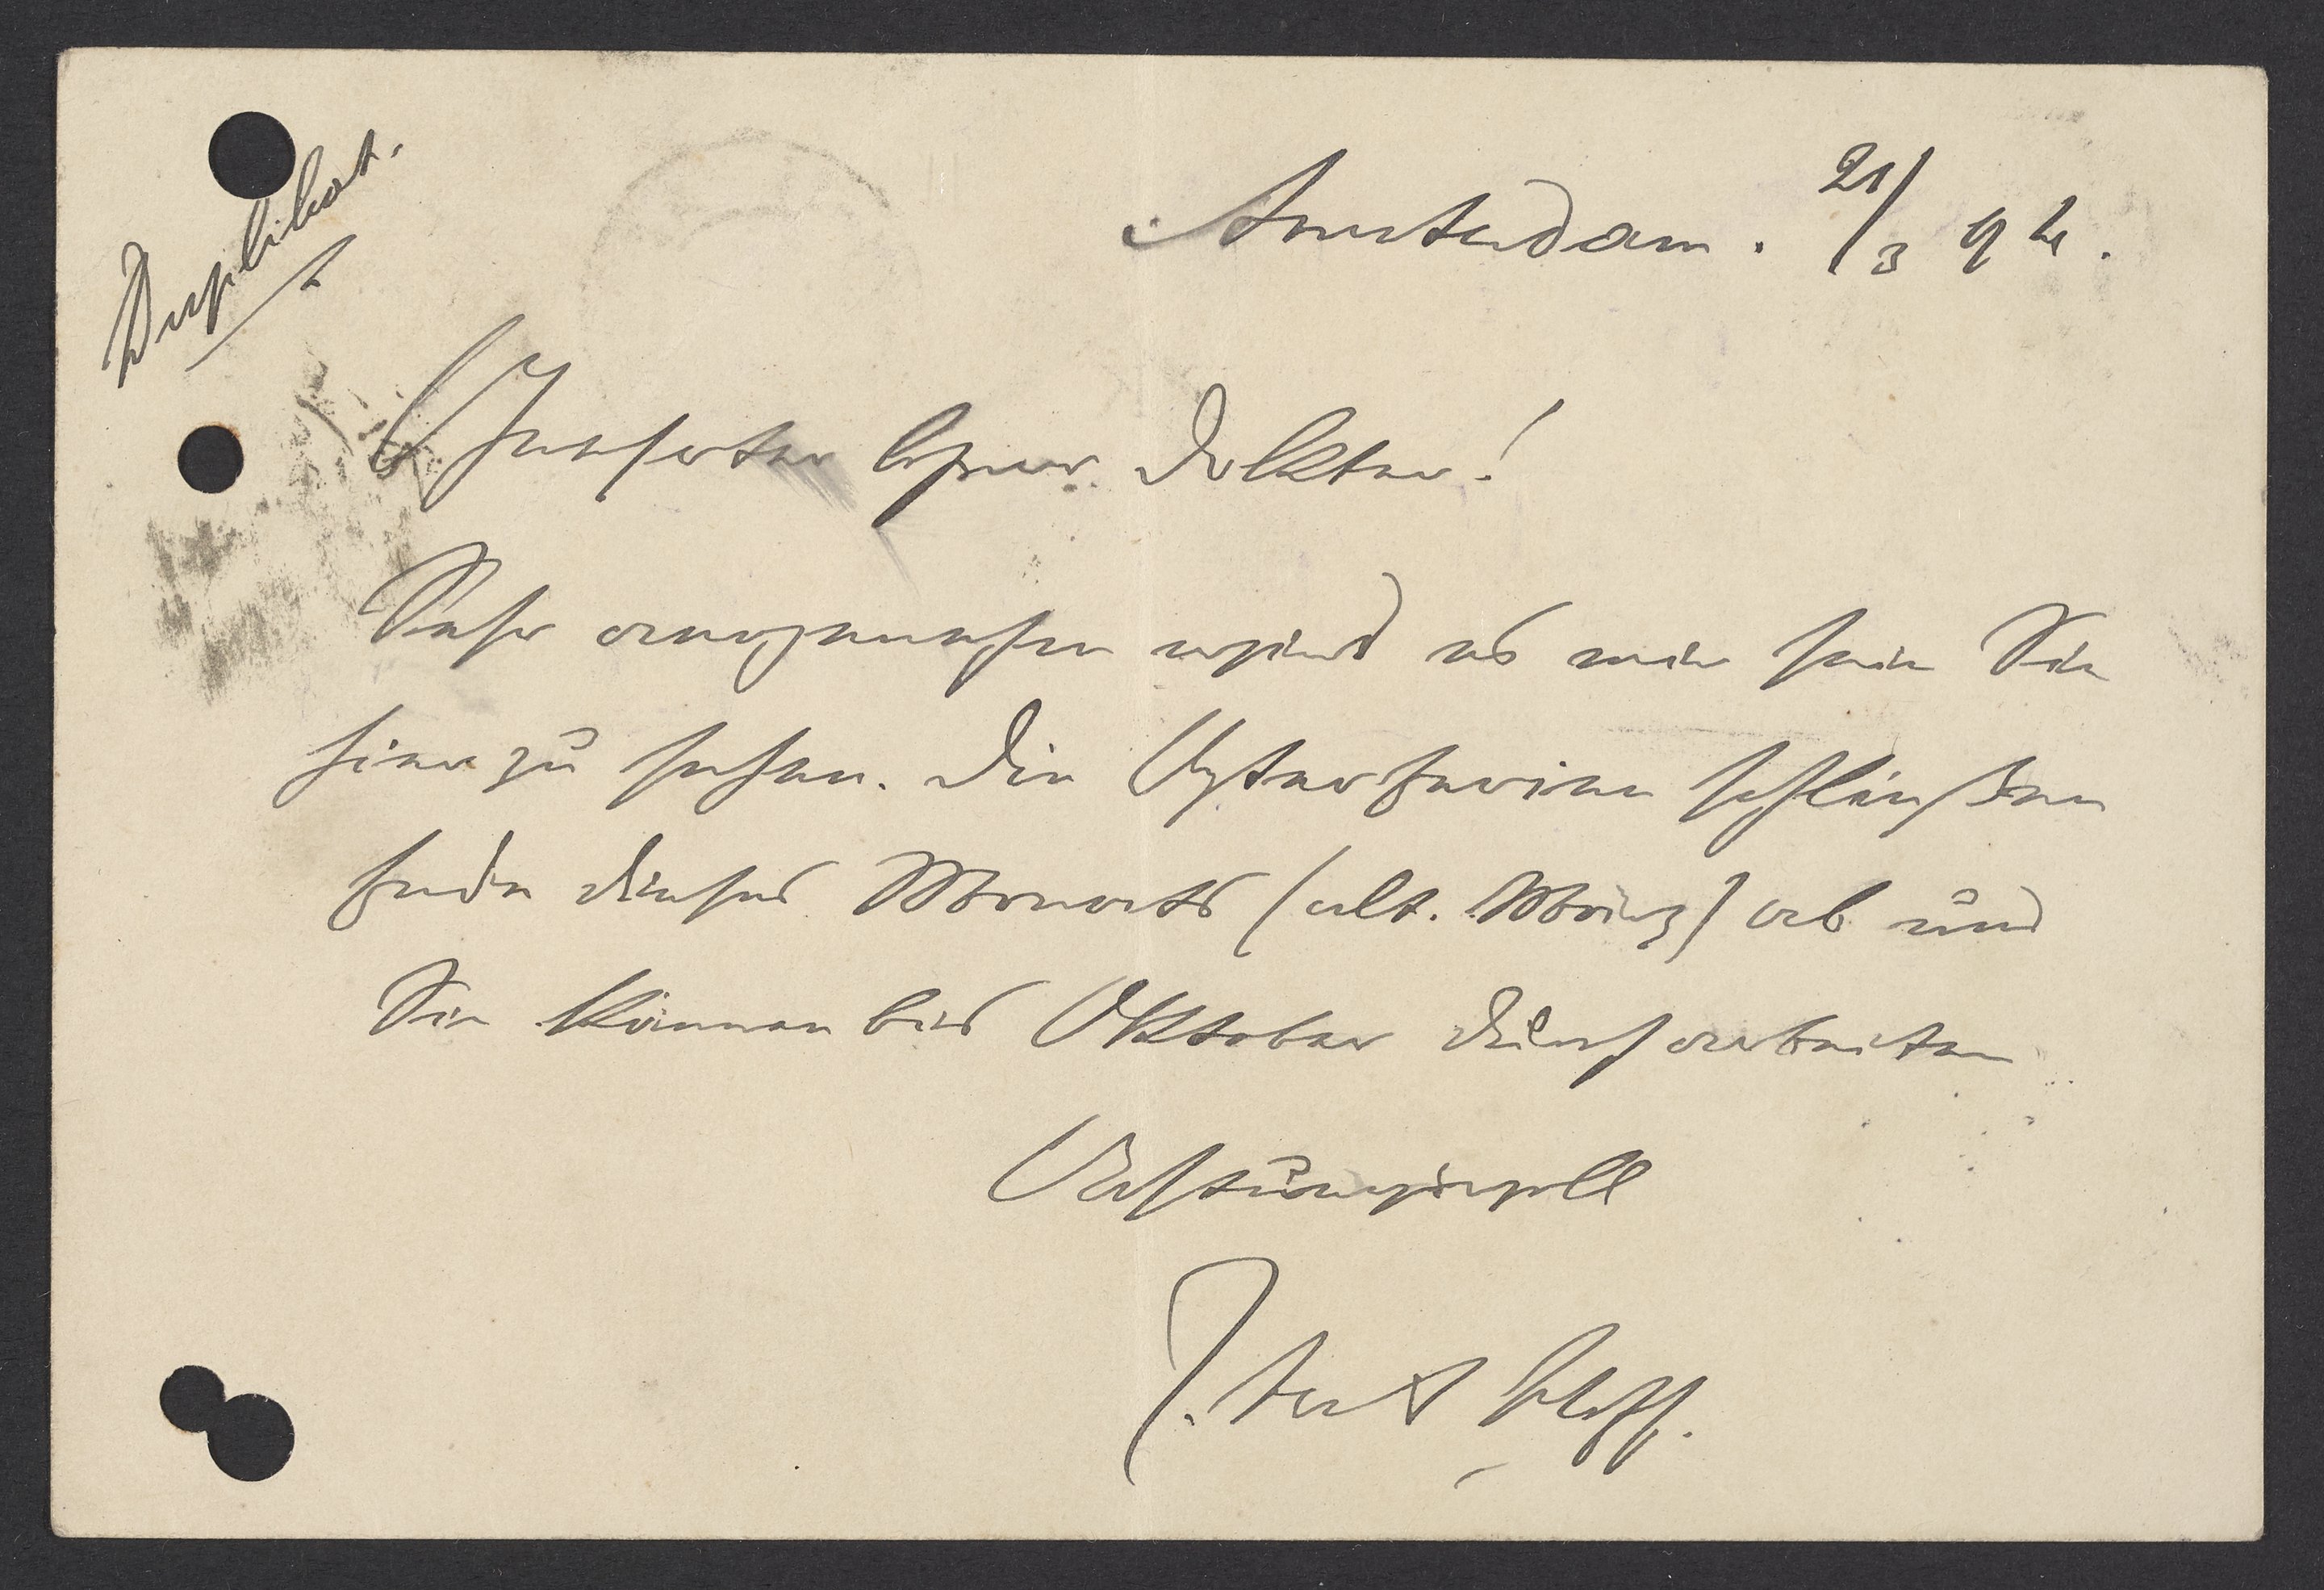 Duplikat.
Amsterdam. 21/3 94.
Geehrter Herr Doktor!
Sehr angenehm wird es mir sein Sie
hier zu sehen. Die Osterferien schließen
Ende dieses Monats (alt. März) ab und
Sie können bis Oktober durcharbeiten
Achtungsvoll
J. H. van't Hoff.